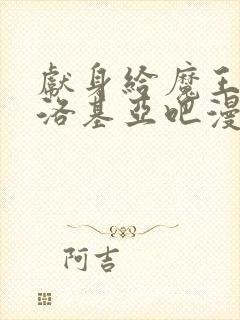 獻身給魔王
洛基亞吧漫
阿吉